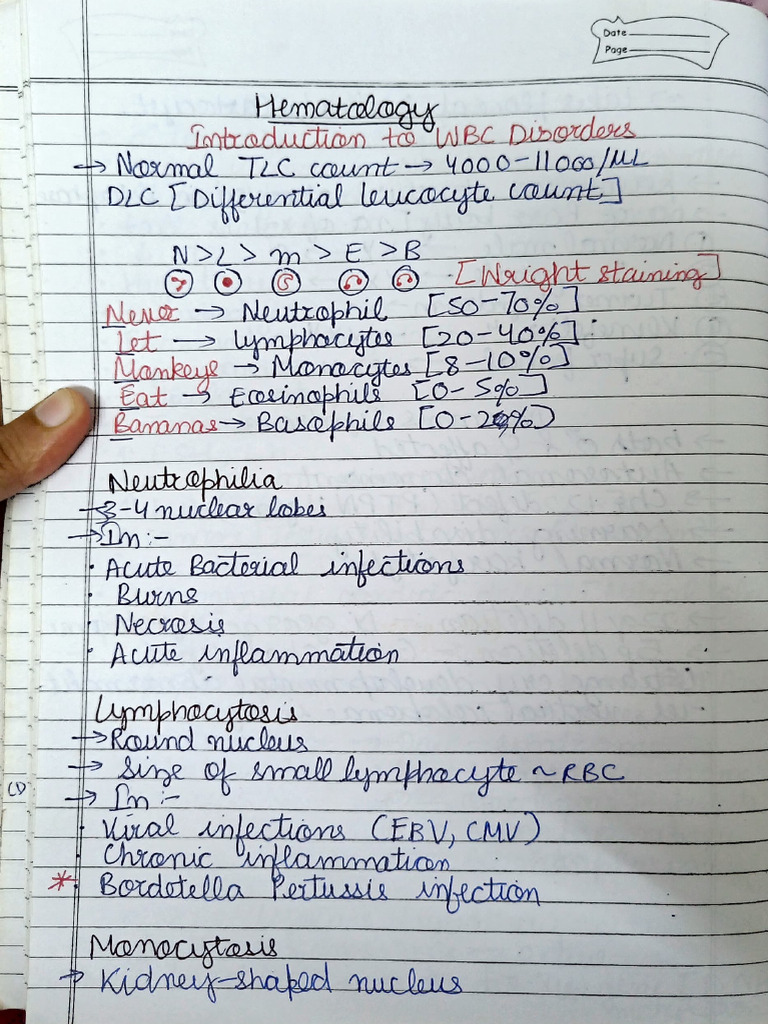 Date
Page
Hematology
Introduction to WBC Disorders
→ Normal TLC count → 4000-11000/µL
DLC [Differential leucocyte count]
N > L > m > E > B
[Wright staining]
Never → Neutrophil [50-70%]
Let → lymphocytes [20-40%]
Monkeys → Monocytes [8-10%]
Eat → Eosinophils [0-5%]
Bananas → Basophils [0-2%)
Neutrophilia
→ 3-4 nuclear lobes
→ In :-
· Acute Bacterial infections
· Burns
· Necrosis
· Acute inflammation
Lymphocytosis
→ Round nucleus
→ Size of small lymphocyte ~ RBC
→ In :-
· Viral infections (EBV, CMV)
· Chronic inflammation
* Bordotella Pertussis infection
Monocytosis
→ Kidney-shaped nucleus